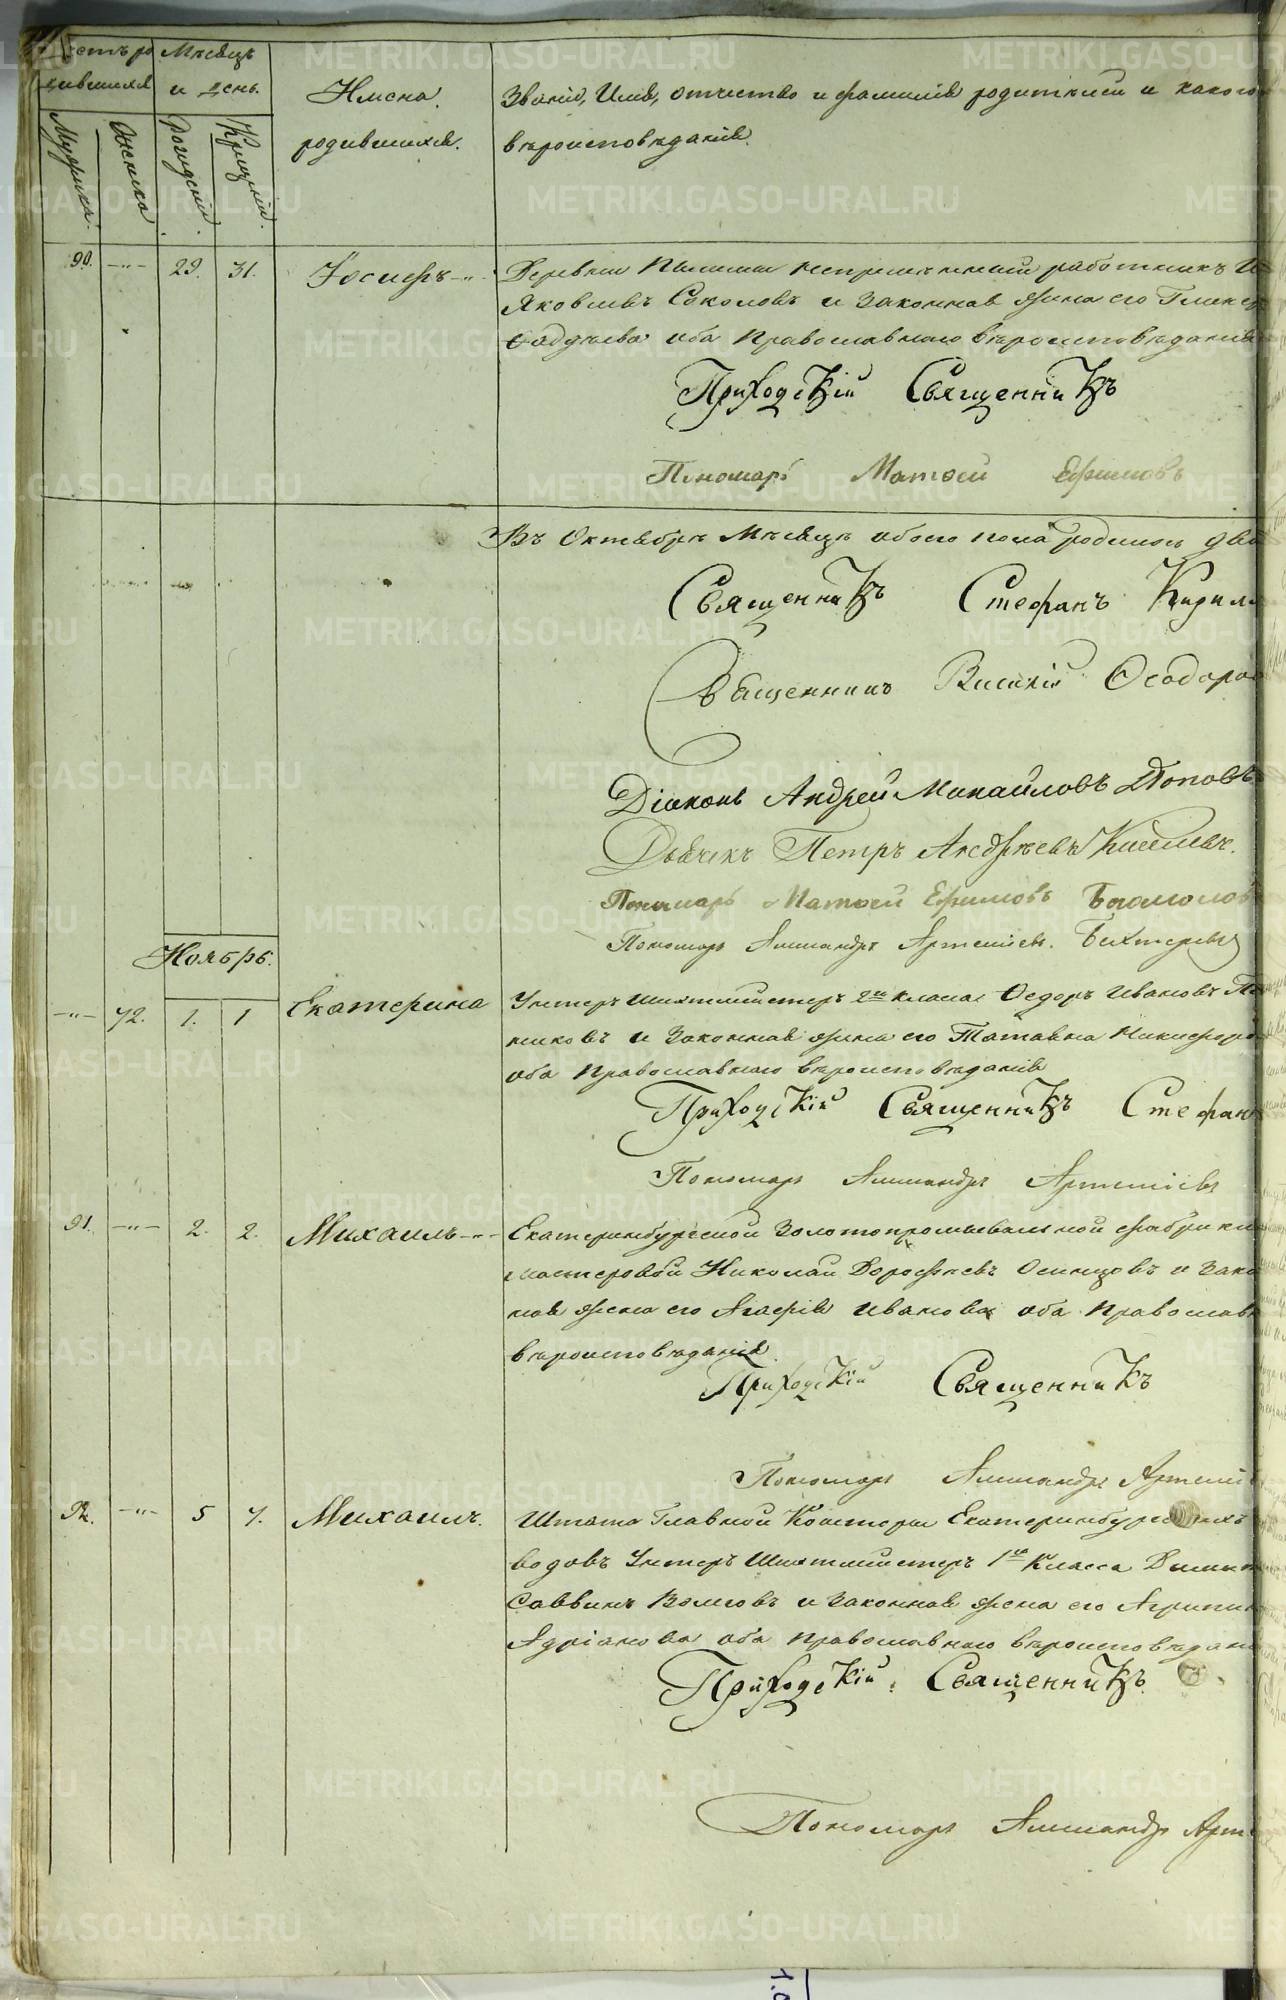 Счетъ ро Мѣсяцъ
дившихся и день.
Имена
родившихся.
Званіе, Имя, отчество и фамилія родителей и какого
вѣроисповѣданія.
Мужеска.
Женска.
Рожденія.
Крещенія.
90. —"— 29. 31. Іосифъ —"— Деревни непремѣнный работникъ
Яковлевъ Соколовъ и законная жена его
оба Православнаго вѣроисповѣданія
Приходскій Священникъ
Пономарь Матѳей Ефимовъ
Въ Октябрѣ Мѣсяцѣ обоего пола родилось
Священникъ Стефанъ
Священникъ Василій
Діаконъ Андрей Михайловъ Поповъ
Дьячекъ Петръ Андреевъ
Пономарь Матѳей Ефимовъ
Пономарь Александръ Артеміевъ. Бехтеревъ
Ноябрь.
—"— 72. 1. 1 Екатерина Унтеръ Шихтмейстеръ 2го класса Ѳедоръ Ивановъ
никовъ и законная жена его Татьяна
оба Православнаго вѣроисповѣданія
Приходскій Священникъ Стефанъ
Пономарь Александръ Артеміевъ
91. —"— 2. 2. Михаилъ —"— Екатеринбургской Золотопромывальной фабрики
мастеровой Николай Дорофеевъ Осинцовъ и зако
ная жена его Агафія Иванова оба Православн
вѣроисповѣданія.
Приходскій Священникъ
Пономарь Александръ Артемі
92. —"— 5 7. Михаилъ. Штата Главной Конторы Екатеринбургскихъ
водовъ Унтеръ Шихтмейстеръ 1го Класса
Саввинъ Волковъ и законная жена его
Адріанова оба Православнаго вѣроисповѣдан
Приходскій Священникъ
Пономарь Александръ Арте
METRIKI.GASO-URAL.RU